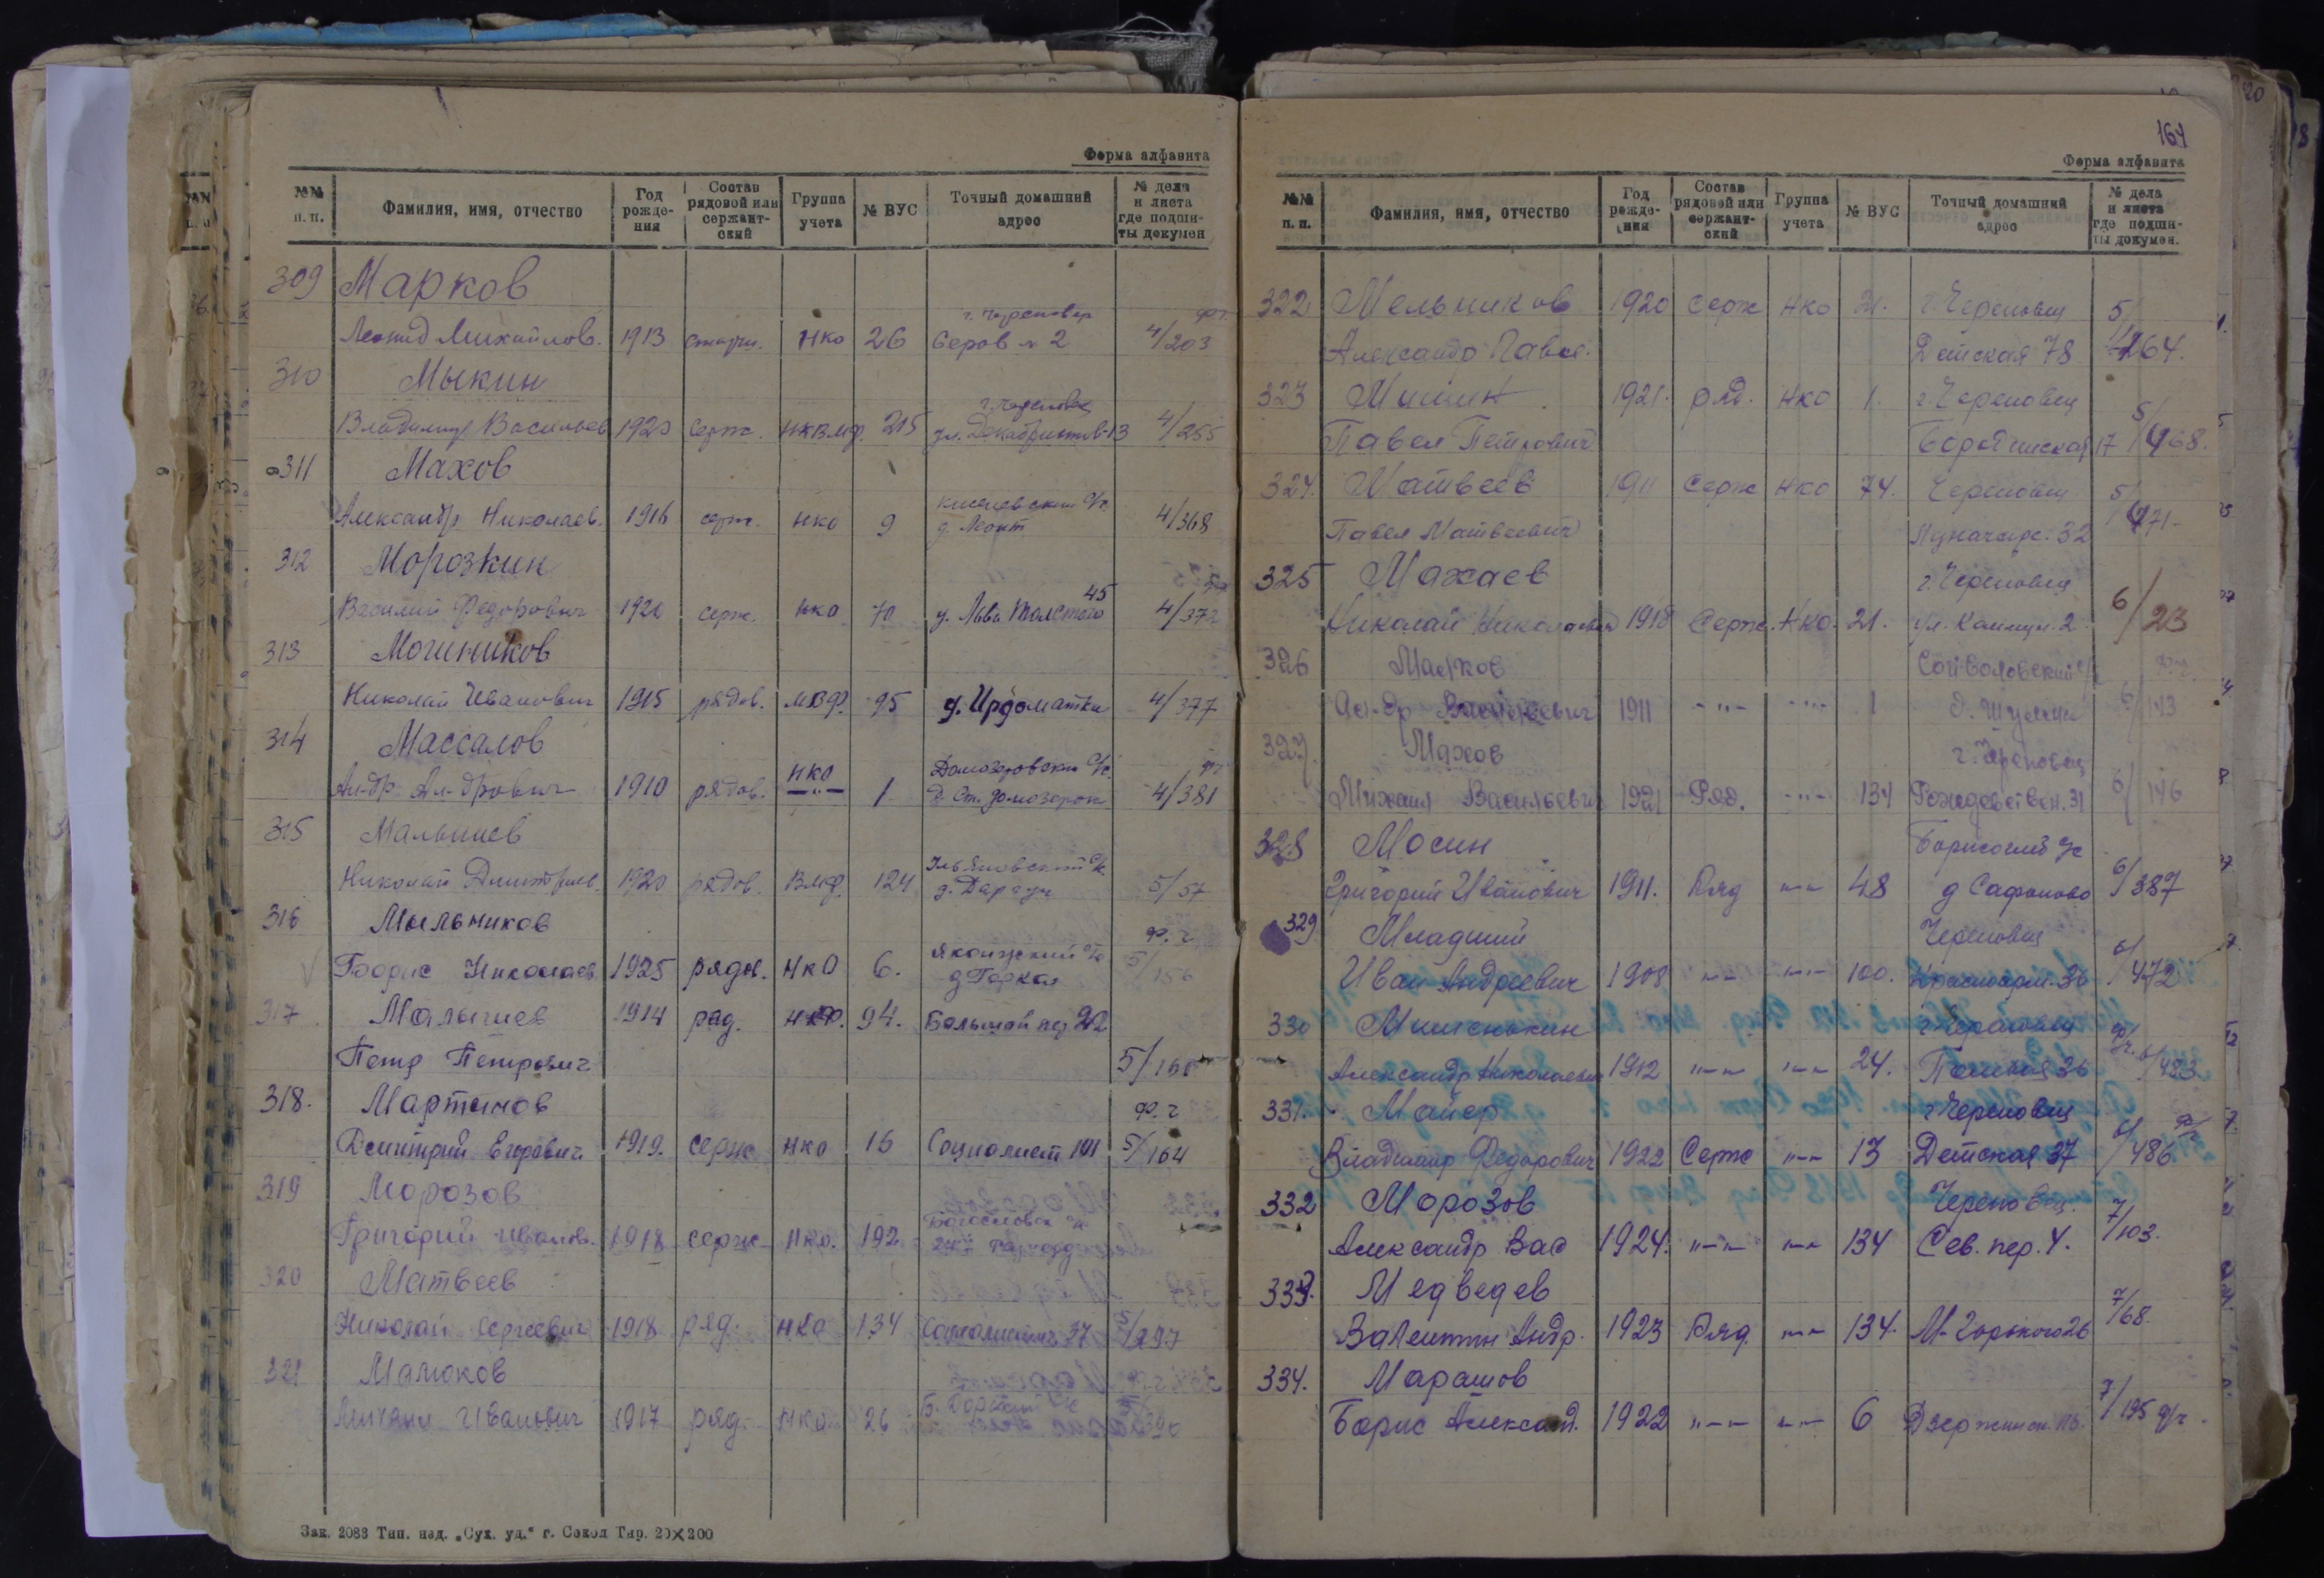 Форма алфавита
№№ п.п. Фамилия, имя, отчество Год рождения Состав рядовой или сержантский Группа учета № ВУС Точный домашний адрес № дела и листа где подшиты докумен
309 Марков
г. Череповец
Леонид Михайлов. 1913 НКО 26 Серов 2 4/203
310 Мыкин
г. Череповец
Владимир Васильев 1920 серж. НКВМФ. 215 ул. Декабристов-13 4/255
311 Махов
Александр Николаев. 1916 серж. НКО 9 д. 4/368
312 Морозкин
45
Василий Федорович 1920 серж. НКО 70 у. Льва Толстого 4/372
313 Могильников
Николай Иванович 1915 рядов. МВФ. 95 д. Ирдоматка 4/377
314 Массалов
НКО Домозеровский с/с.
Ал-др Ал-дрович 1910 рядов. -"- 1 д. Ст. Домозерово 4/381
315 Малышев
Николай Дмитриев. 1920 рядов. ВМФ. 124 д. Даргун 5/57
316 Мыльников
ф. г
Борис Николаев 1925 рядов. НКО 6. д Горка 5/156
317 Малышев 1914 ряд. НКФ. 94. Большой пер 22
Петр Петрович 5/160
318. Мартынов ф. г
Дмитрий Егорович 1919. серж НКО 16 Социалист 101 5/164
319 Морозов
Григорий Иванов. 1918 серж НКО. 192
320 Матвеев
Николай Сергеевич 1918 ряд. НКО 134 Социалистич 37 5/297
321 Малюков
Михаил Иванович 1917 ряд. НКО 26
Зак. 2088 Тип. изд. „Сух. уд.“ г. Сокол Тир. 20×200
164
Форма алфавита
№№ п.п. Фамилия, имя, отчество Год рождения Состав рядовой или сержантский Группа учета № ВУС Точный домашний адрес № дела и листа где подшиты докумен.
322 Мельников 1920 Серж НКО 21. г. Череповец 5/
Александр Павл. Детская 78 464.
323 Мишин 1921. ряд. НКО 1. г. Череповец 5/
Павел Петрович Бородинская 17 468.
324. Матвеев 1911 Серж НКО 74. Череповец 5/
Павел Матвеевич Луначарс. 32 471
325 Махаев г. Череповец
Николай Николаевич 1918 Серж. НКО. 21. ул. Коммун. 2. 6/23
326 Малков
Ал-др 1911 -"- -"- 1 6/143
327. Махов г. Череповец
Михаил Васильевич 1921 Ряд. -"- 134 Рождествен. 31 6/146
328 Мосин
Григорий Иванович 1911. Ряд -"- 48 д Сафоново 6/387
329 Младший Череповец
Иван Андреевич 1908 -"- -"- 100. Красноарм. 36 6/472
330 Мишенькин г Череповец
Александр Николаевич 1912 -"- -"- 24. 36 6/483
331. Майер г Череповец
Владимир Федорович 1922 Серж -"- 13 Детская 37 6/486
332 Морозов Череповец.
Александр Вас 1924. -"- -"- 134 Сев. пер. 4. 7/103.
333. Медведев
Валентин Андр. 1923 Ряд. -"- 134. М-Горького 26 7/68.
334. Марашов
Борис Александ. 1922 -"- -"- 6 Дзержинск. 7/195